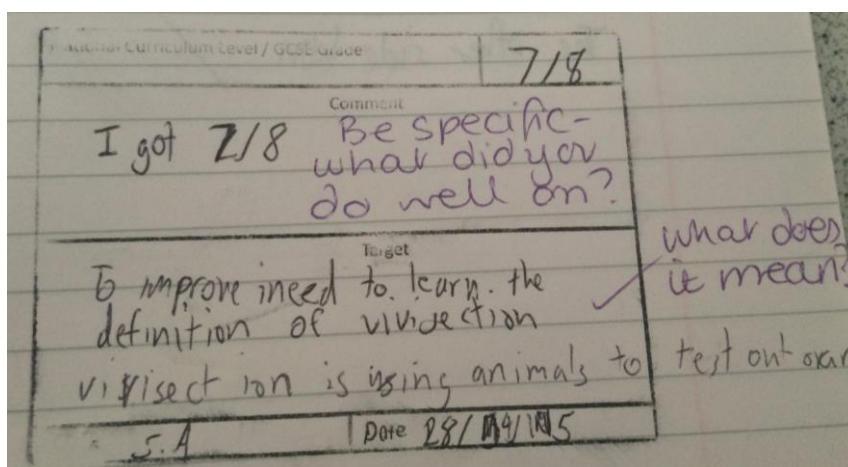 National Curriculum Level / GCSE Grade
7/8
Comment
I got 7/8
Be specific-
what did you
do well on?
Target
To improve i need to. learn. the
definition of vivisection
what does
it mean?
vivisect ion is using animals to test out
S.A
Date 28/